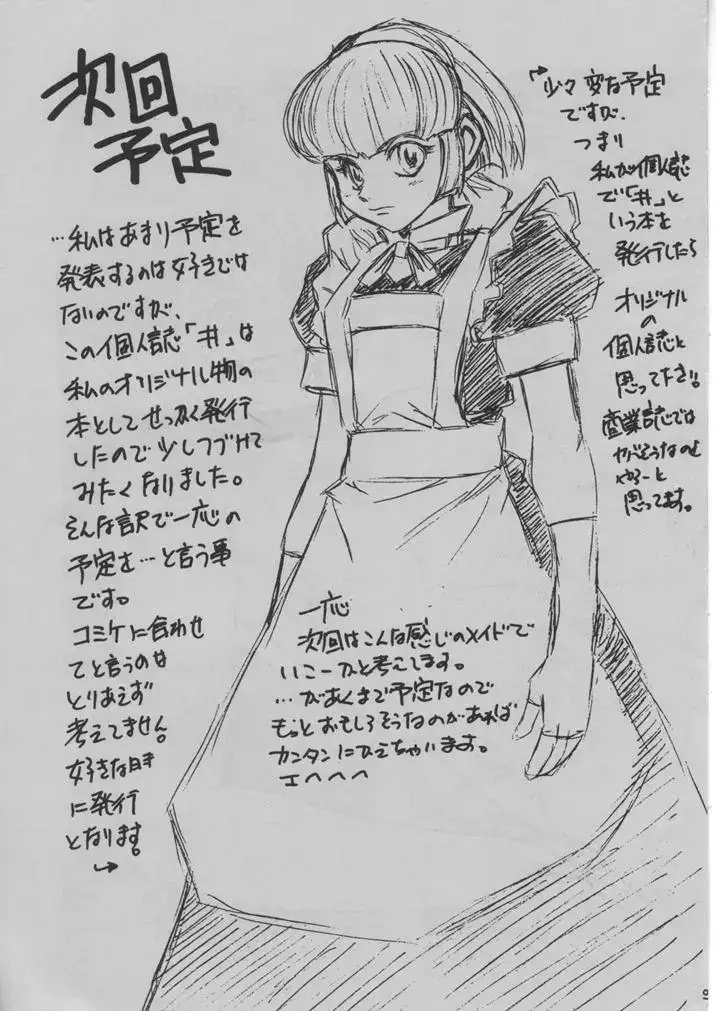 次回
予定
…私はあまり予定を
発表するのは好きでは
ないのですが、
この個人誌「井」は
私のオリジナル物の
本としてせっかく発行
したので少しつづけて
みたくなりました。
そんな訳で一応の
予定を…と言う事
です。
コミケに合わせ
てと言うのは
とりあえず
考えてません。
好きな時
に発行
となります。
→
一応
次回はこんな感じのメイドで
いこーかと考えてます。
…があくまで予定なので
もっとおもしろそうなのがあれば
カンタンにかえちゃいます。
エヘヘヘ
少々変な予定
ですが、
つまり
私が個人誌
で「井」と
いう本を
発行したら
オリジナル
の
個人誌と
思って下さい。
商業誌では
ヤバそうなのを
やろーと
思ってます。